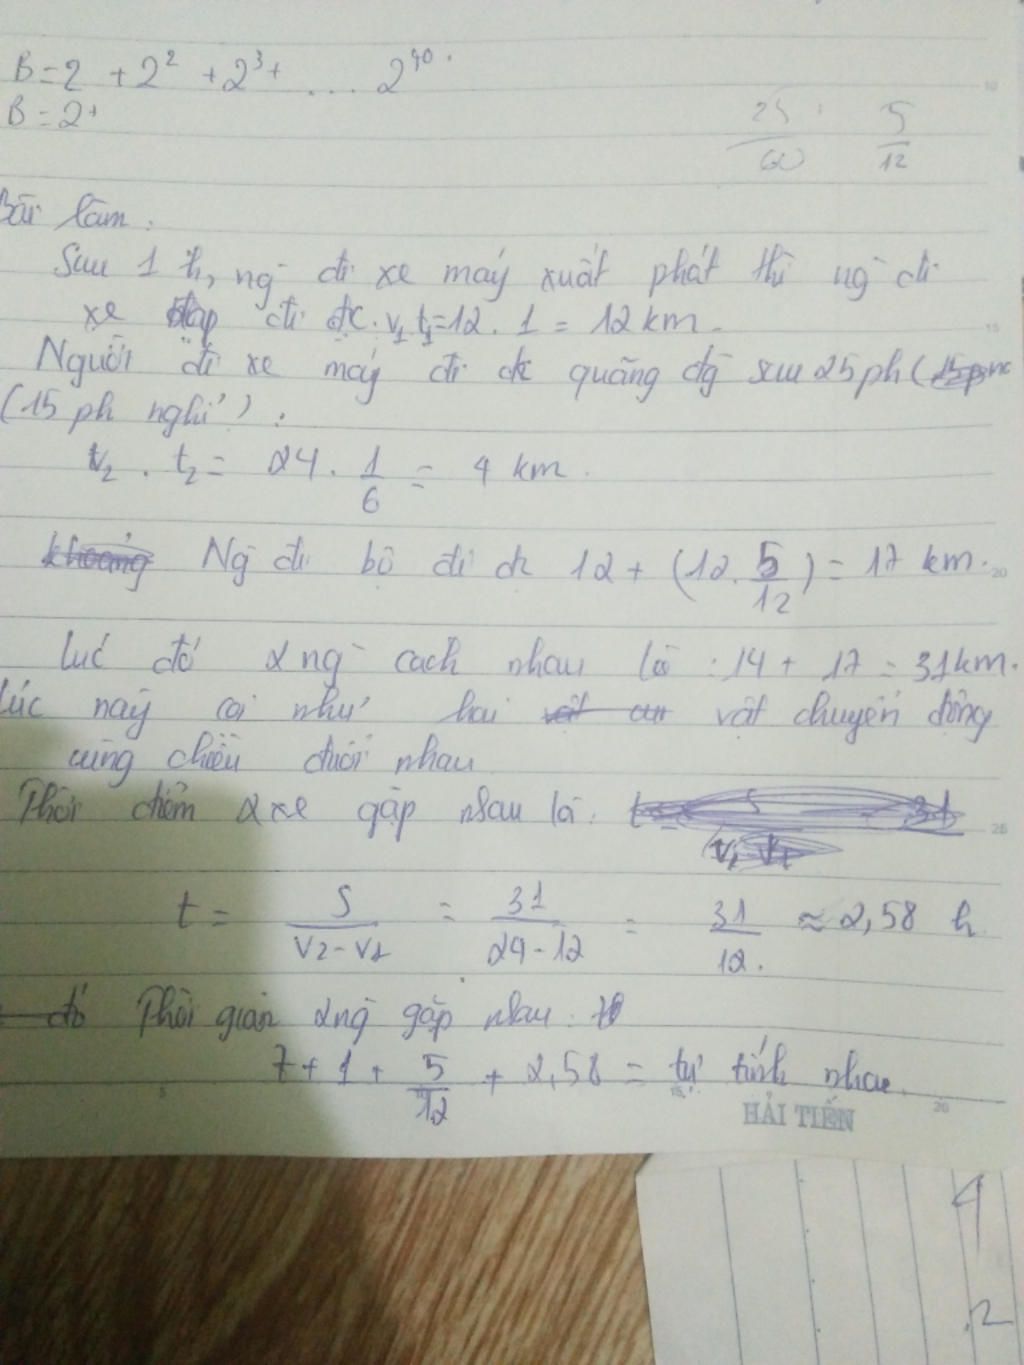 B = 2 + 2² + 2³ + .... 2⁴⁰.
B = 2 +
25/60 5/12
Bài làm:
Sau 1 h, ng đi xe máy xuất phát thì ng đi
xe đạp đi đc. v₁t₁ = 12. 1 = 12 km.
Người đi xe máy đi đc quãng đg sau 25 ph (
(15 ph nghỉ).
v₂ . t₂ = 24 . 1/6 = 4 km.
khoảng Ng đi bộ đi đc 12 + (12. 5/12) = 17 km.
lúc đó 2 ng cách nhau là : 14 + 17 = 31 km.
lúc này coi như hai vật chuyển động
cùng chiều đuổi nhau
Thời điểm 2 xe gặp nhau là:
t = S/(v₂ - v₁) = 31/(24 - 12) = 31/12. ≈ 2,58 h
đó Thời gian 2 ng gặp nhau:
7 + 1 + 5/12 + 2,58 = tự tính nha
HẢI TIẾN
4
.2